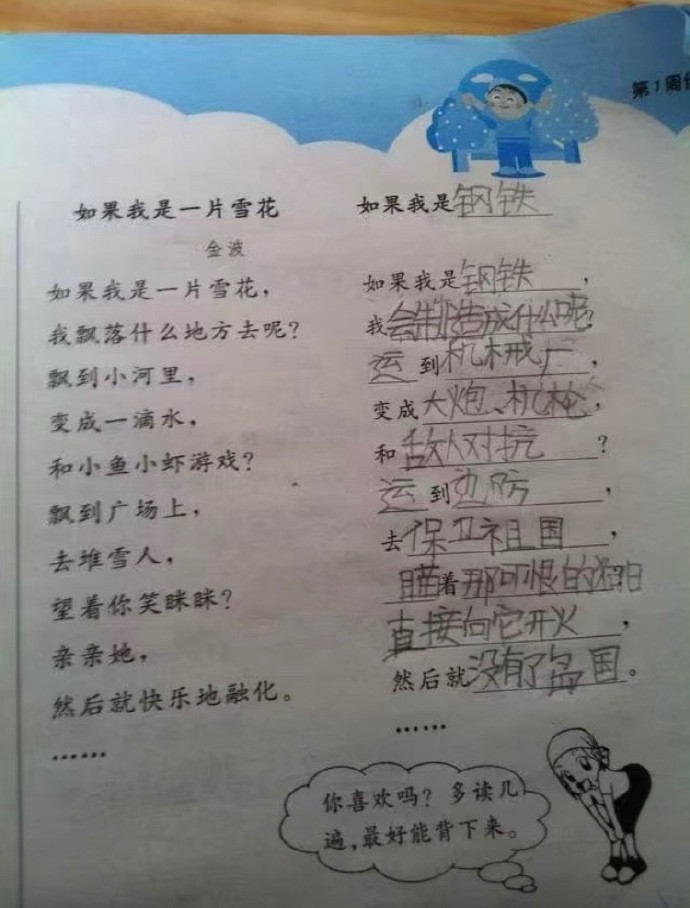 第1周
如果我是一片雪花
金波
如果我是一片雪花，
我飘落什么地方去呢？
飘到小河里，
变成一滴水，
和小鱼小虾游戏？
飘到广场上，
去堆雪人，
望着你笑眯眯？
亲亲她，
然后就快乐地融化。
……
如果我是钢铁
如果我是钢铁，
我会制造成什么呢？
运到机械厂，
变成大炮、机枪，
和敌人对抗？
运到边防，
去保卫祖国，
瞄着那可恨的
直接向它开火，
然后就没有了岛国。
……
你喜欢吗？多读几
遍，最好能背下来。